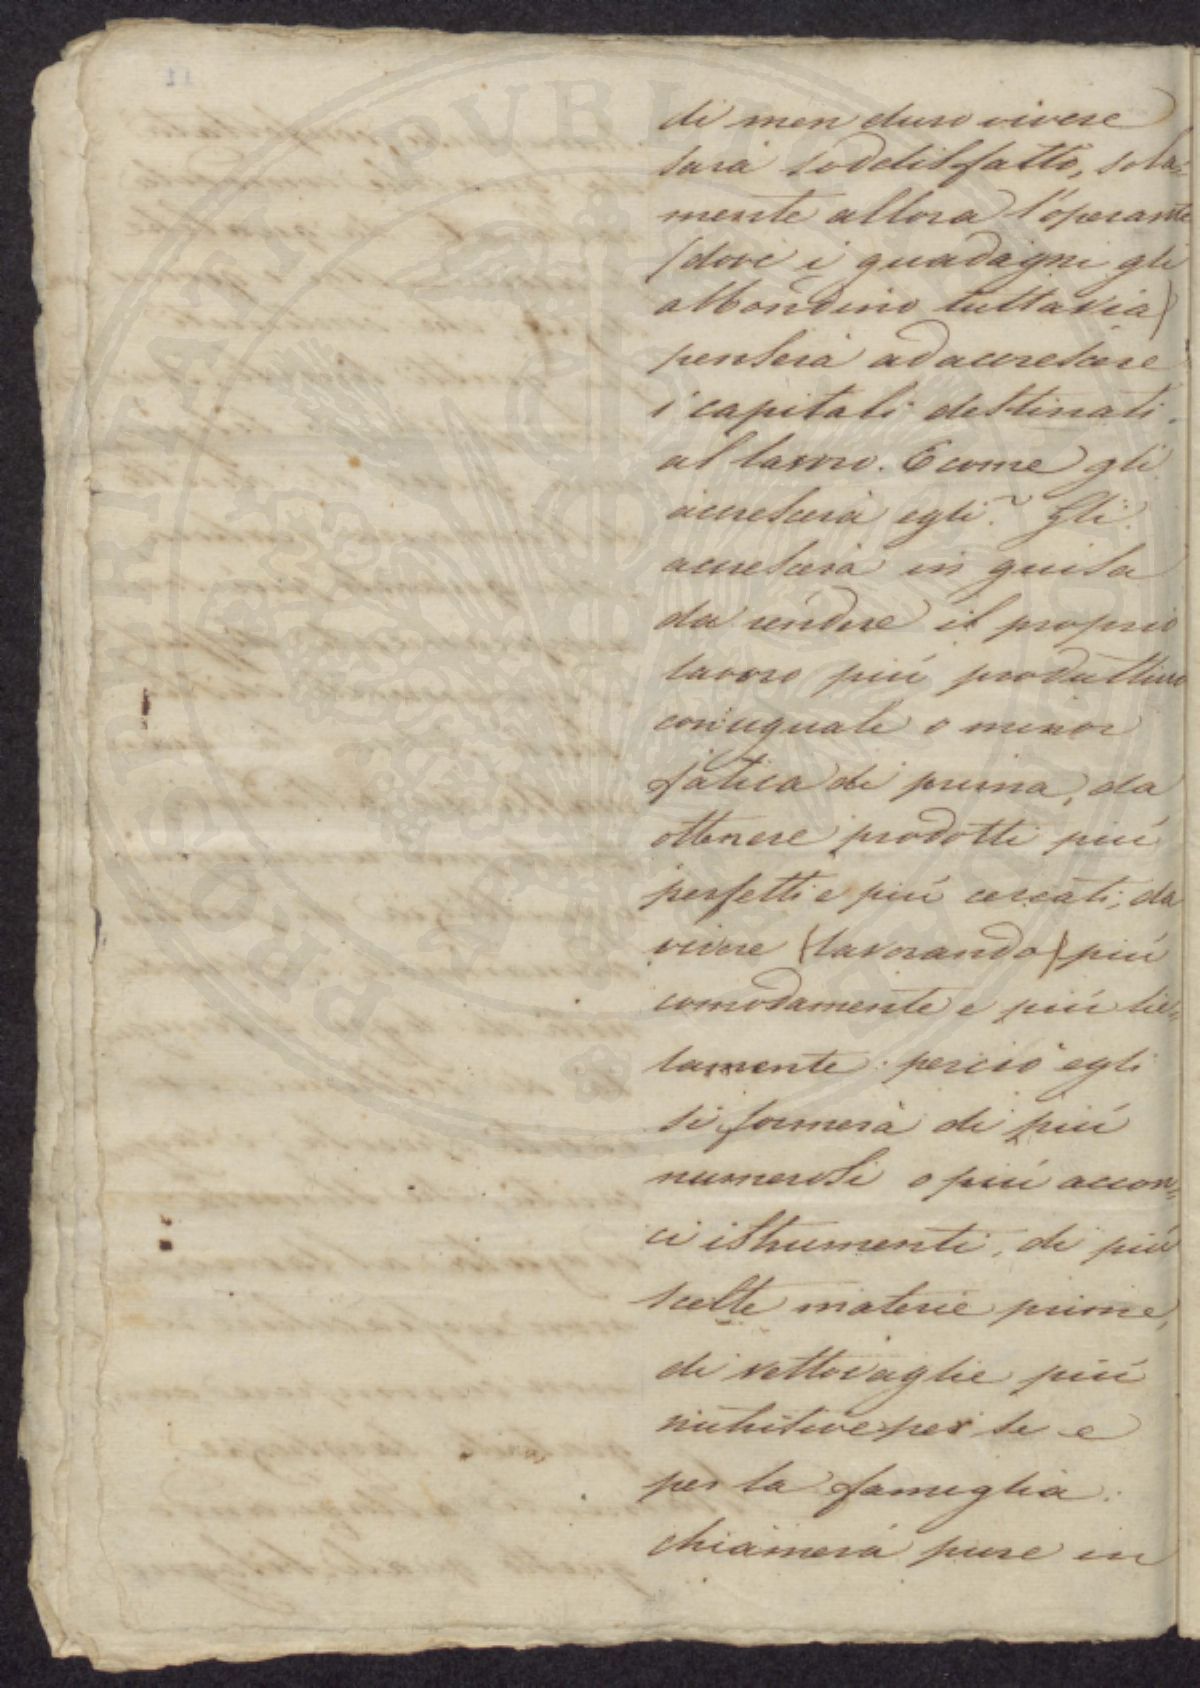 di men duro vivere
sarà soddisfatto, sola=
mente allora l'operante
(dove i guadagni gli
abbondino tuttavia)
penserà ad accrescere
i capitali destinati
al lavoro. E come gli
accrescerà egli? Gli
accrescerà in guisa
da rendere il proprio
lavoro più produttivo
con uguale o minor
fatica di prima, da
ottenere prodotti più
perfetti e più cercati; da
vivere (lavorando) più
comodamente e più lie=
tamente: perciò egli
si fornerà di più
numerosi o più accon=
ci istrumenti, di più
scelte materie prime,
di vettovaglie più
nutritive per se e
per la famiglia:
chiamerà pure in
PUBLICA
PROSPERITATI